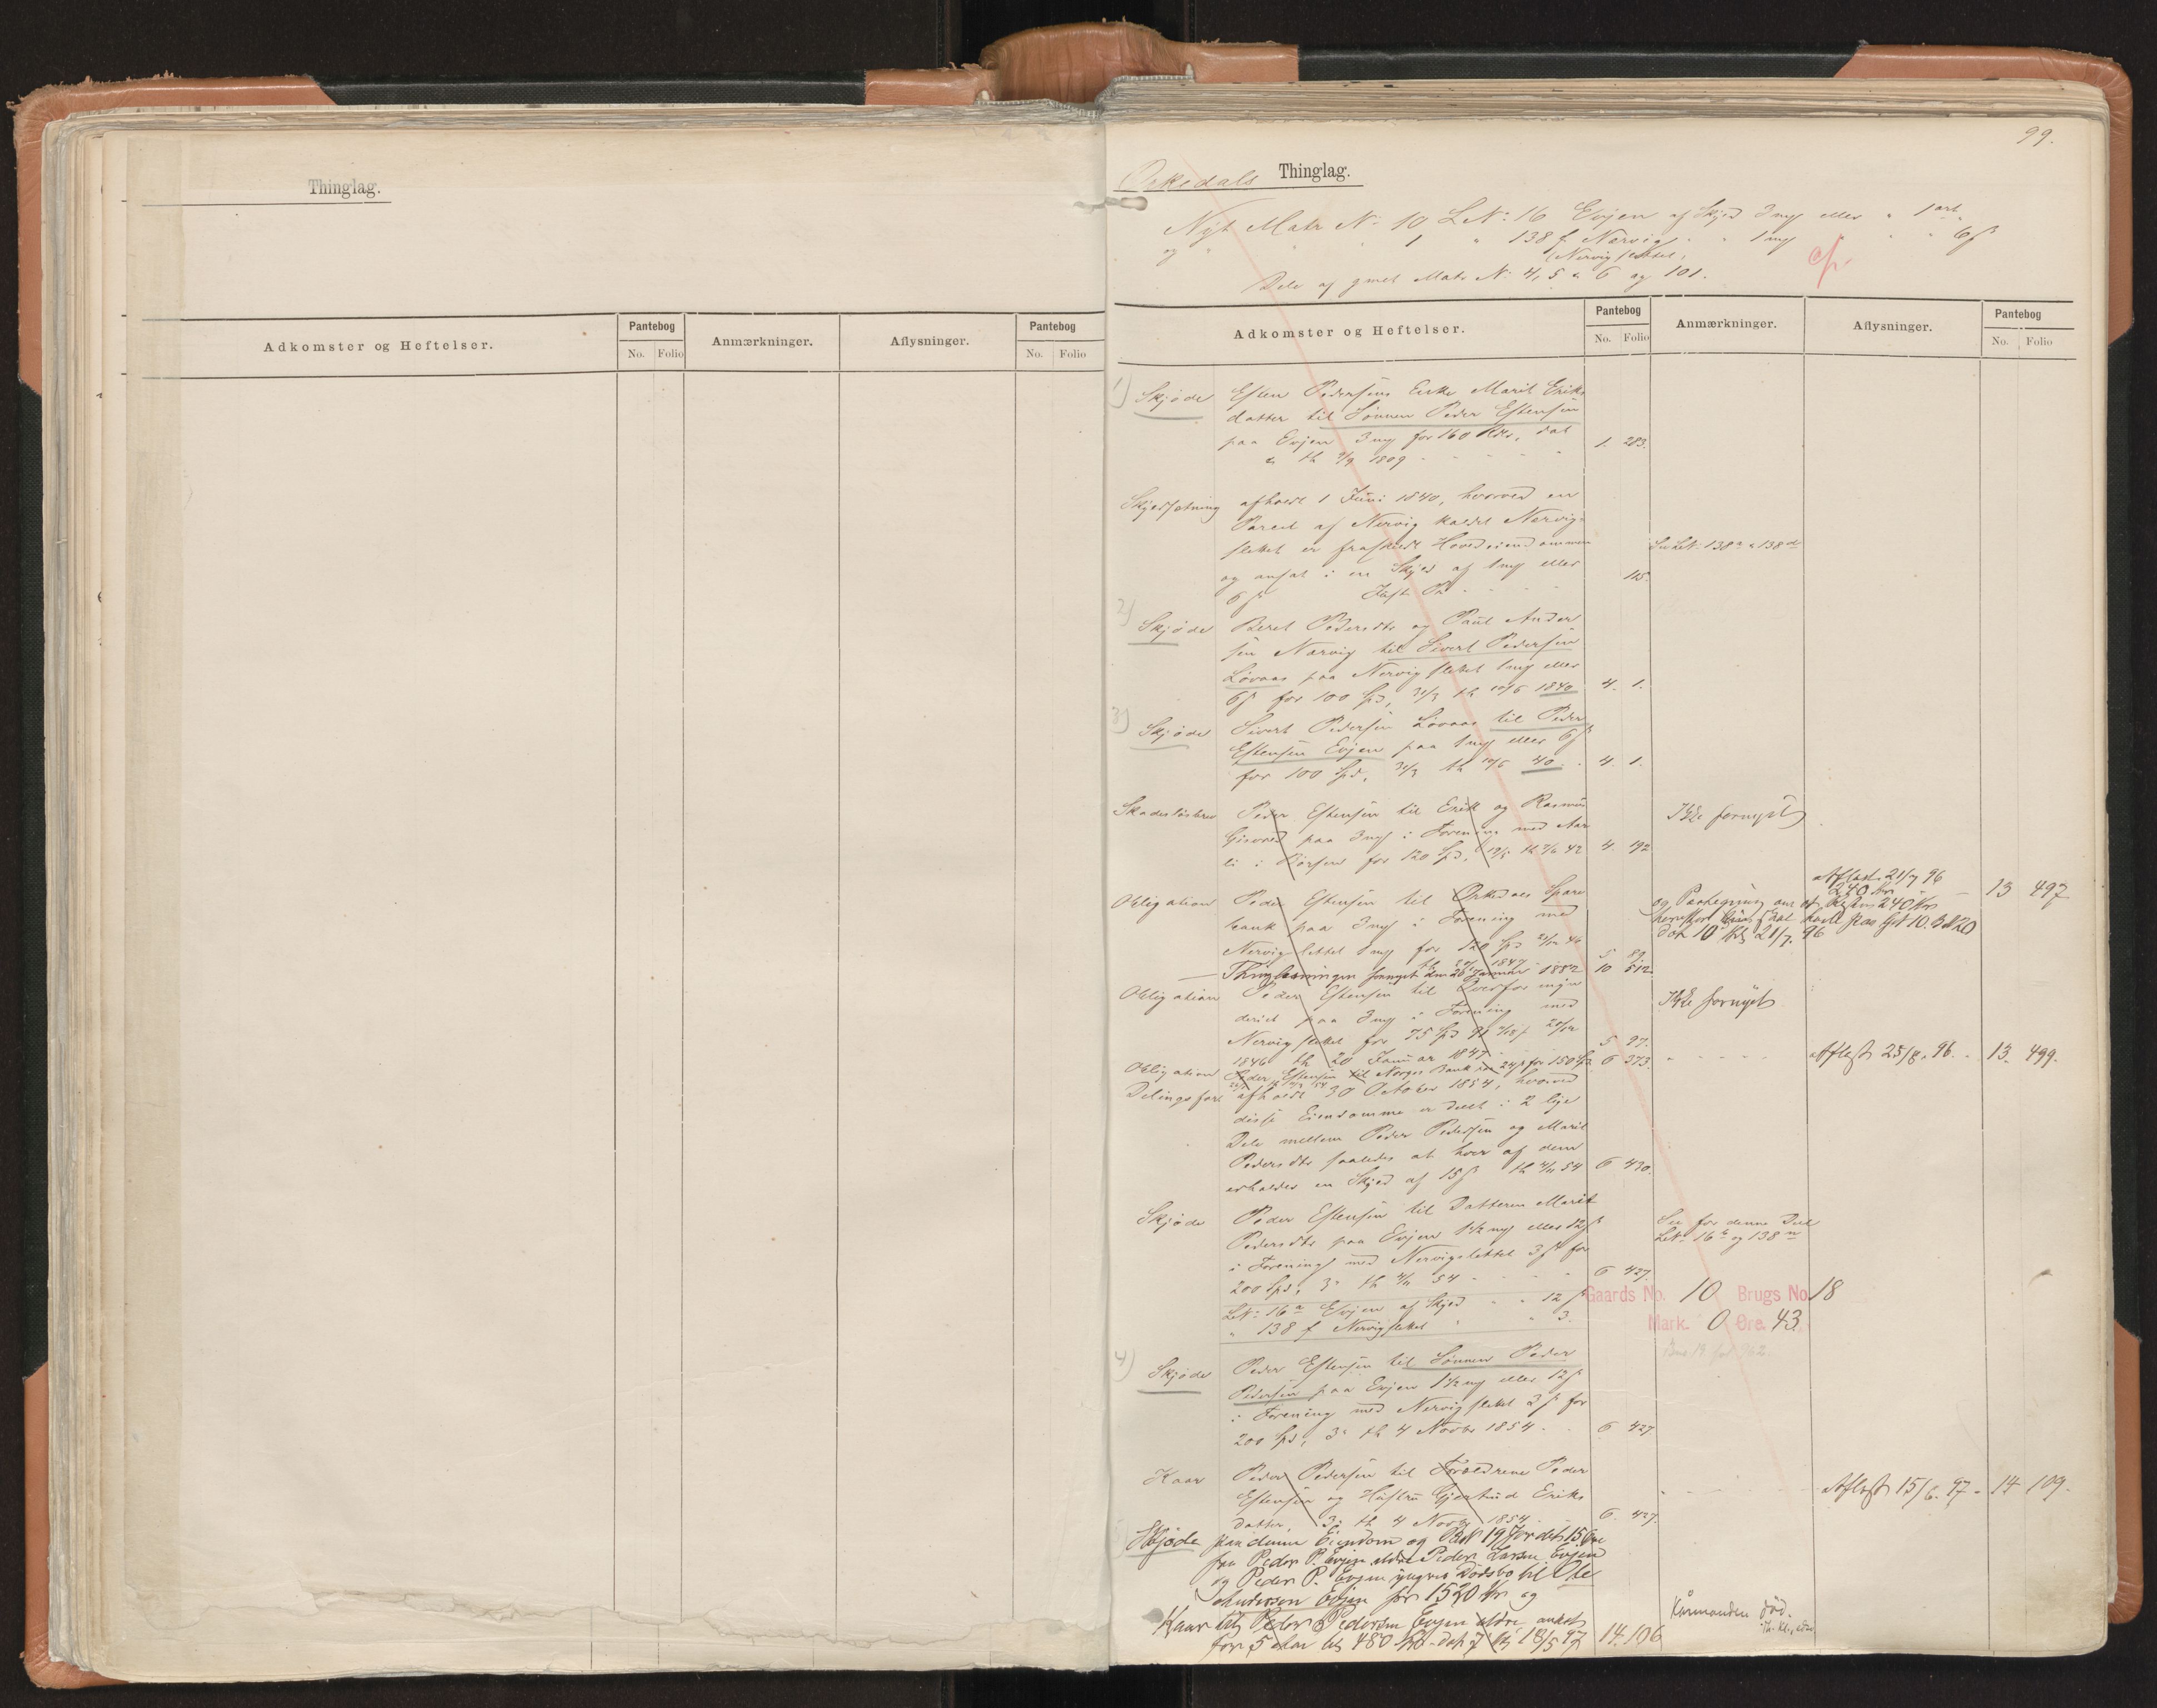 Thinglag.
Adkomster og Heftelser.
Pantebog
No. Folio
Anmærkninger.
Aflysninger.
Pantebog
No. Folio
99.
Orkedals Thinglag.
Nyt Matr N: 10 LN: 16 Evjen af Skyld 3 mg eller " 1 ort "
og " " 1 " 138 f Nervig " " 1 mg " " 6 s
(Nervigslettet)
Dele af gmel Matr N: 4, 5 & 6 og 101.
Adkomster og Heftelser.
Pantebog
No. Folio
Anmærkninger.
Aflysninger.
Pantebog
No. Folio
1) Skjøde Esten Pedersens Enke Marit Eriks
datter til Sønnen Peder Estensen
paa Evjen 3 mg for 160 Rdr, dat
& th 9/9 1809 1. 283.
Skyldsætning afholdt 1 Juni 1840, hvorved en
Parcel af Nervig kaldet Nervig-
slettet er fraskilt Hovedeiendommen Se LN: 138 a & 138 d
og ansat i en Skyld af 1 mg eller
6 s 115.
2) Skjøde Beret Pedersdtr og Paul Ander
sen Nervig til Sivert Pedersen
Løvaas paa Nervigslettet 1 mg eller
6 s for 100 Spd, 31/3 th 10/6 1840 4. 1.
3) Skjøde Sivert Pedersen Løvaas til Peder
Estensen Evjen paa 1 mg eller 6 s
for 100 Spd, 31/3 th 10/6 40. 4. 1.
Skadesløsbrev Peder Estensen til Erik og Rasmus
paa 3 mg i Forening med
i Børsen for 120 Spd, th 42 4. 192
Ikke fornyet
Obligation Peder Estensen til Orkedals Spare
bank paa 3 mg i Forening med
Nervigslettet 1 mg for 120 Spd 21/12 46
th 20/1 1847 5 89.
Thinglæsningen fornyet den 26 Januar 1882 10 512
Aflæst 21/7 96
240 Kr 13 497
og Paategning om at Resten 240 Kr
10 21/7. 96
Obligation Peder Estensen til Overfor myn
deriet paa 3 mg i Forening med
Nervigslettet for 75 Spd
1846 th 20 Januar 1847 5 97.
Ikke fornyet
Obligation Peder Estensen til Norges Bank for 150 Spd 6 373.
Aflæst 25/8. 96. 13. 499.
Delingsforr afholdt 30 October 1854, hvorved
disse Eiendomme er delt i 2 lige
Dele mellem Peder Pedersen og Marit
Pedersdtr saaledes at hver af dem
erholder en Skyld af 15 s th 4/11 54 6 430.
Skjøde Peder Estensen til Datteren Marit
Pedersdtr paa Evjen 1 1/2 mg eller 12 s
i Forening med Nervigslettet 3 s for
200 Spd, th 4/11 54 6 427.
See for denne Deel
LN: 16 b og 138 n
LN: 16 a Evjen af Skyld " 12 s
" 138 f Nervigslettet " " 3.
Gaards No. 10 Brugs No 18
Mark. 0 Øre. 43.
4) Skjøde Peder Estensen til Sønnen Peder
Pedersen paa Evjen 1 1/2 mg eller 12 s
i Forening med Nervigslettet 3 s for
200 Spd, th 4 Novbr 1854. 6 427
Kaar Peder Pedersen til Forældrene Peder
Estensen og Hustru Gjertrud Eriks
datter, th 4 Novbr 1854 6. 427.
Aflæst 15/6. 97 - 14 109.
Skjøde paa denne Eiendom og BN 19 15 Øre
fra Peder P. Evjen ældre Peder Larsen Evjen
og Peder P. Evjen yngres Dødsbo til Ole
Andersen Evjen for 1520 Kr og
Kaar til Peder Pedersen Evjen ældre, anslat
for 5 Aar til 480 Kr. 18/5 97 14. 106
Kårmanden død.